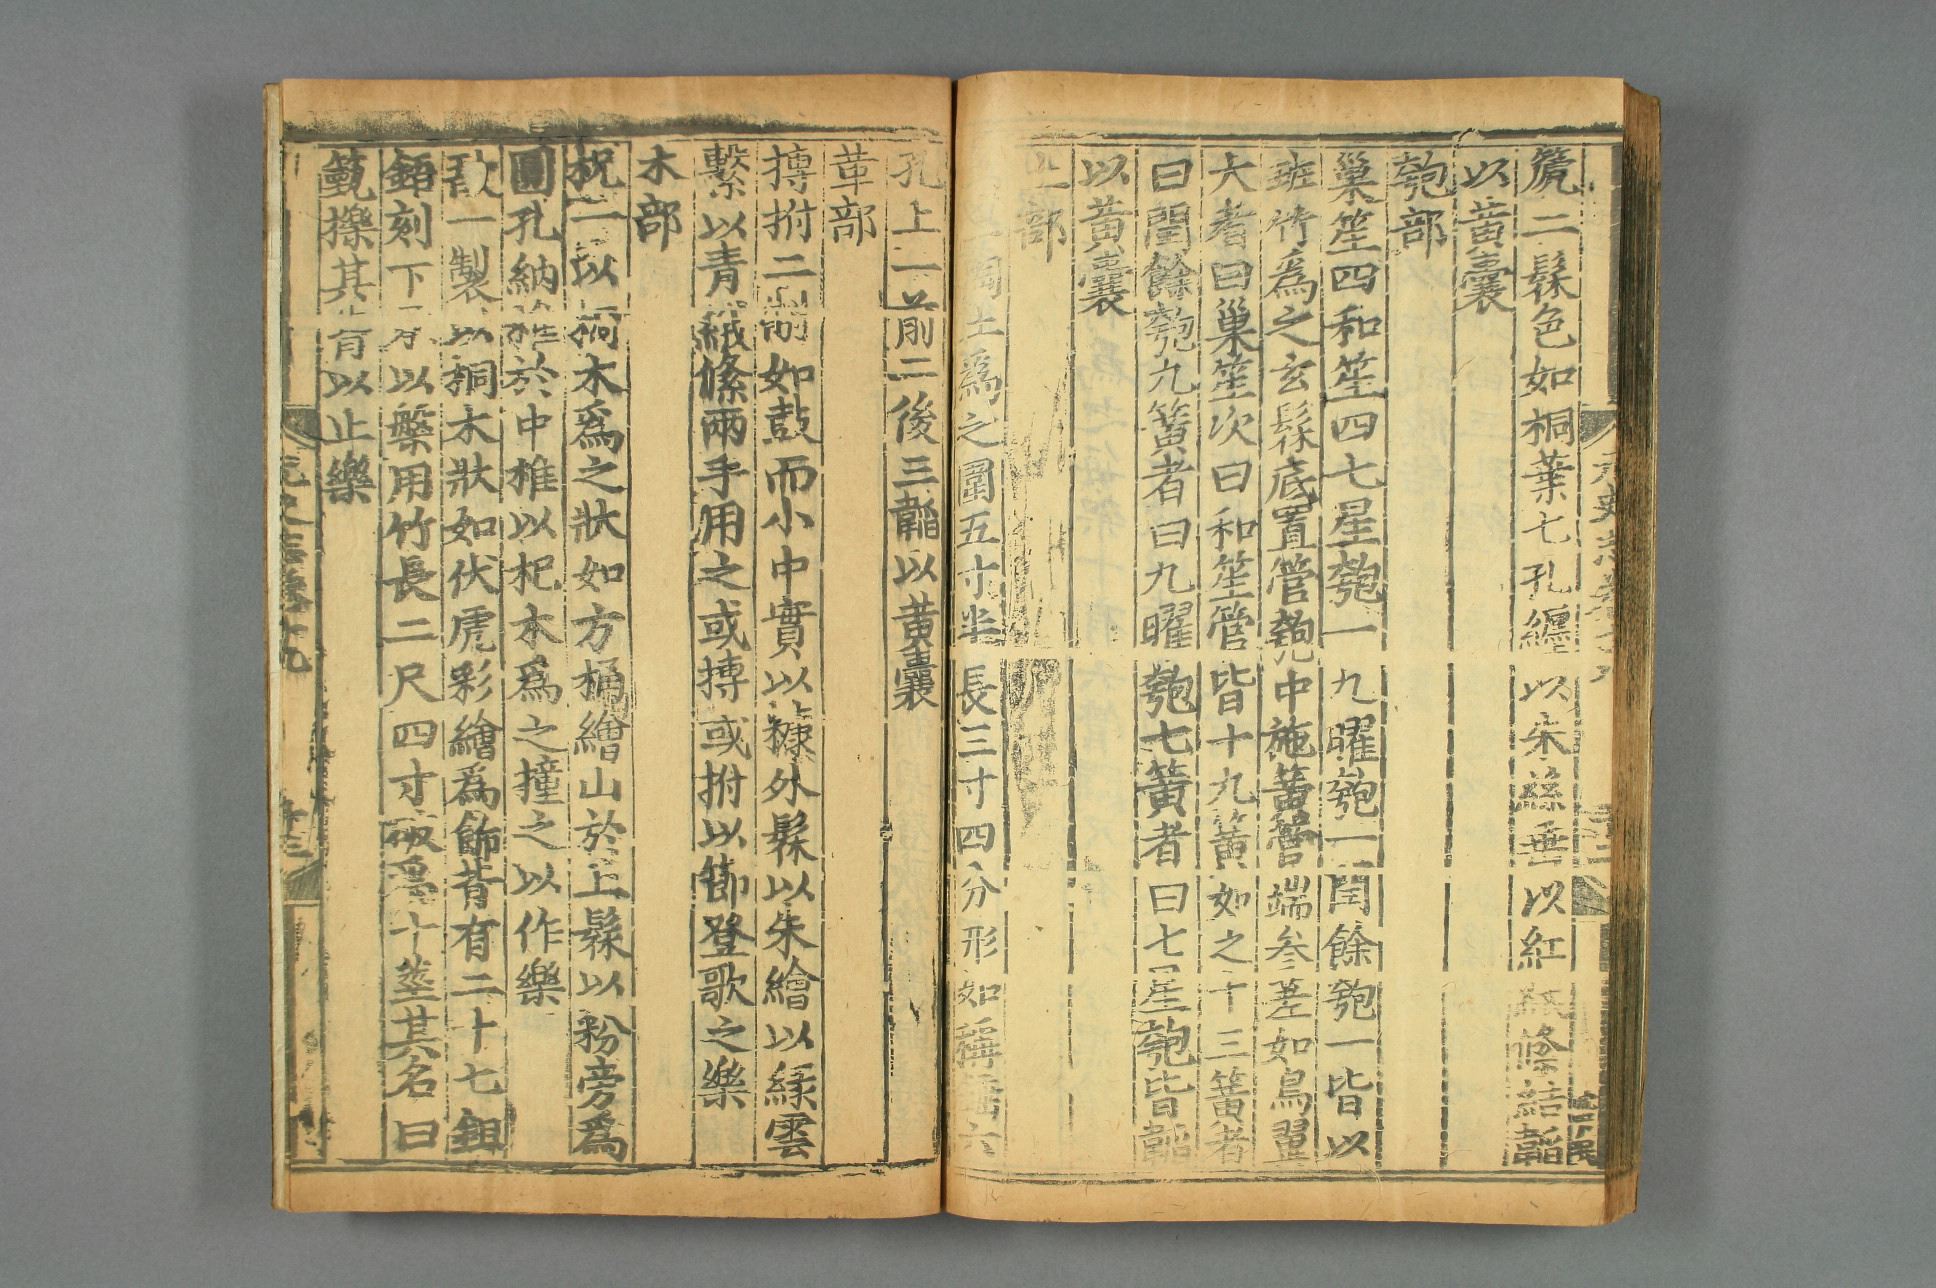 篪二髹色如桐葉七孔纏以朱絲垂以紅絨絛結韜
以黃囊
匏部
巢笙四和笙四七星匏一九曜匏一閏餘匏一皆以
斑竹爲之玄髹底置管匏中施簧管端參差如鳥翼
大者曰巢笙次曰和笙管皆十九簧如之十三簧者
曰閏餘匏九簧者曰九曜匏七簧者曰七星匏皆韜
以黃囊
土部
陶土爲之圍五寸半長三寸四分形如稱錘六
孔上一前二後三韜以黃囊
革部
搏拊二制如鼓而小中實以糠外髹以朱繪以綠雲
繫以青絨絛兩手用之或搏或拊以節登歌之樂
木部
柷一以桐木爲之狀如方桶繪山於上髹以粉旁爲
圓孔納椎於中椎以杞木爲之撞之以作樂
敔一製以桐木狀如伏虎彩繪爲飾背有二十七鉏
鋙刻下承以槃用竹長二尺四寸破爲十莖其名曰
籈擽其背以止樂
元史志卷十九
十三